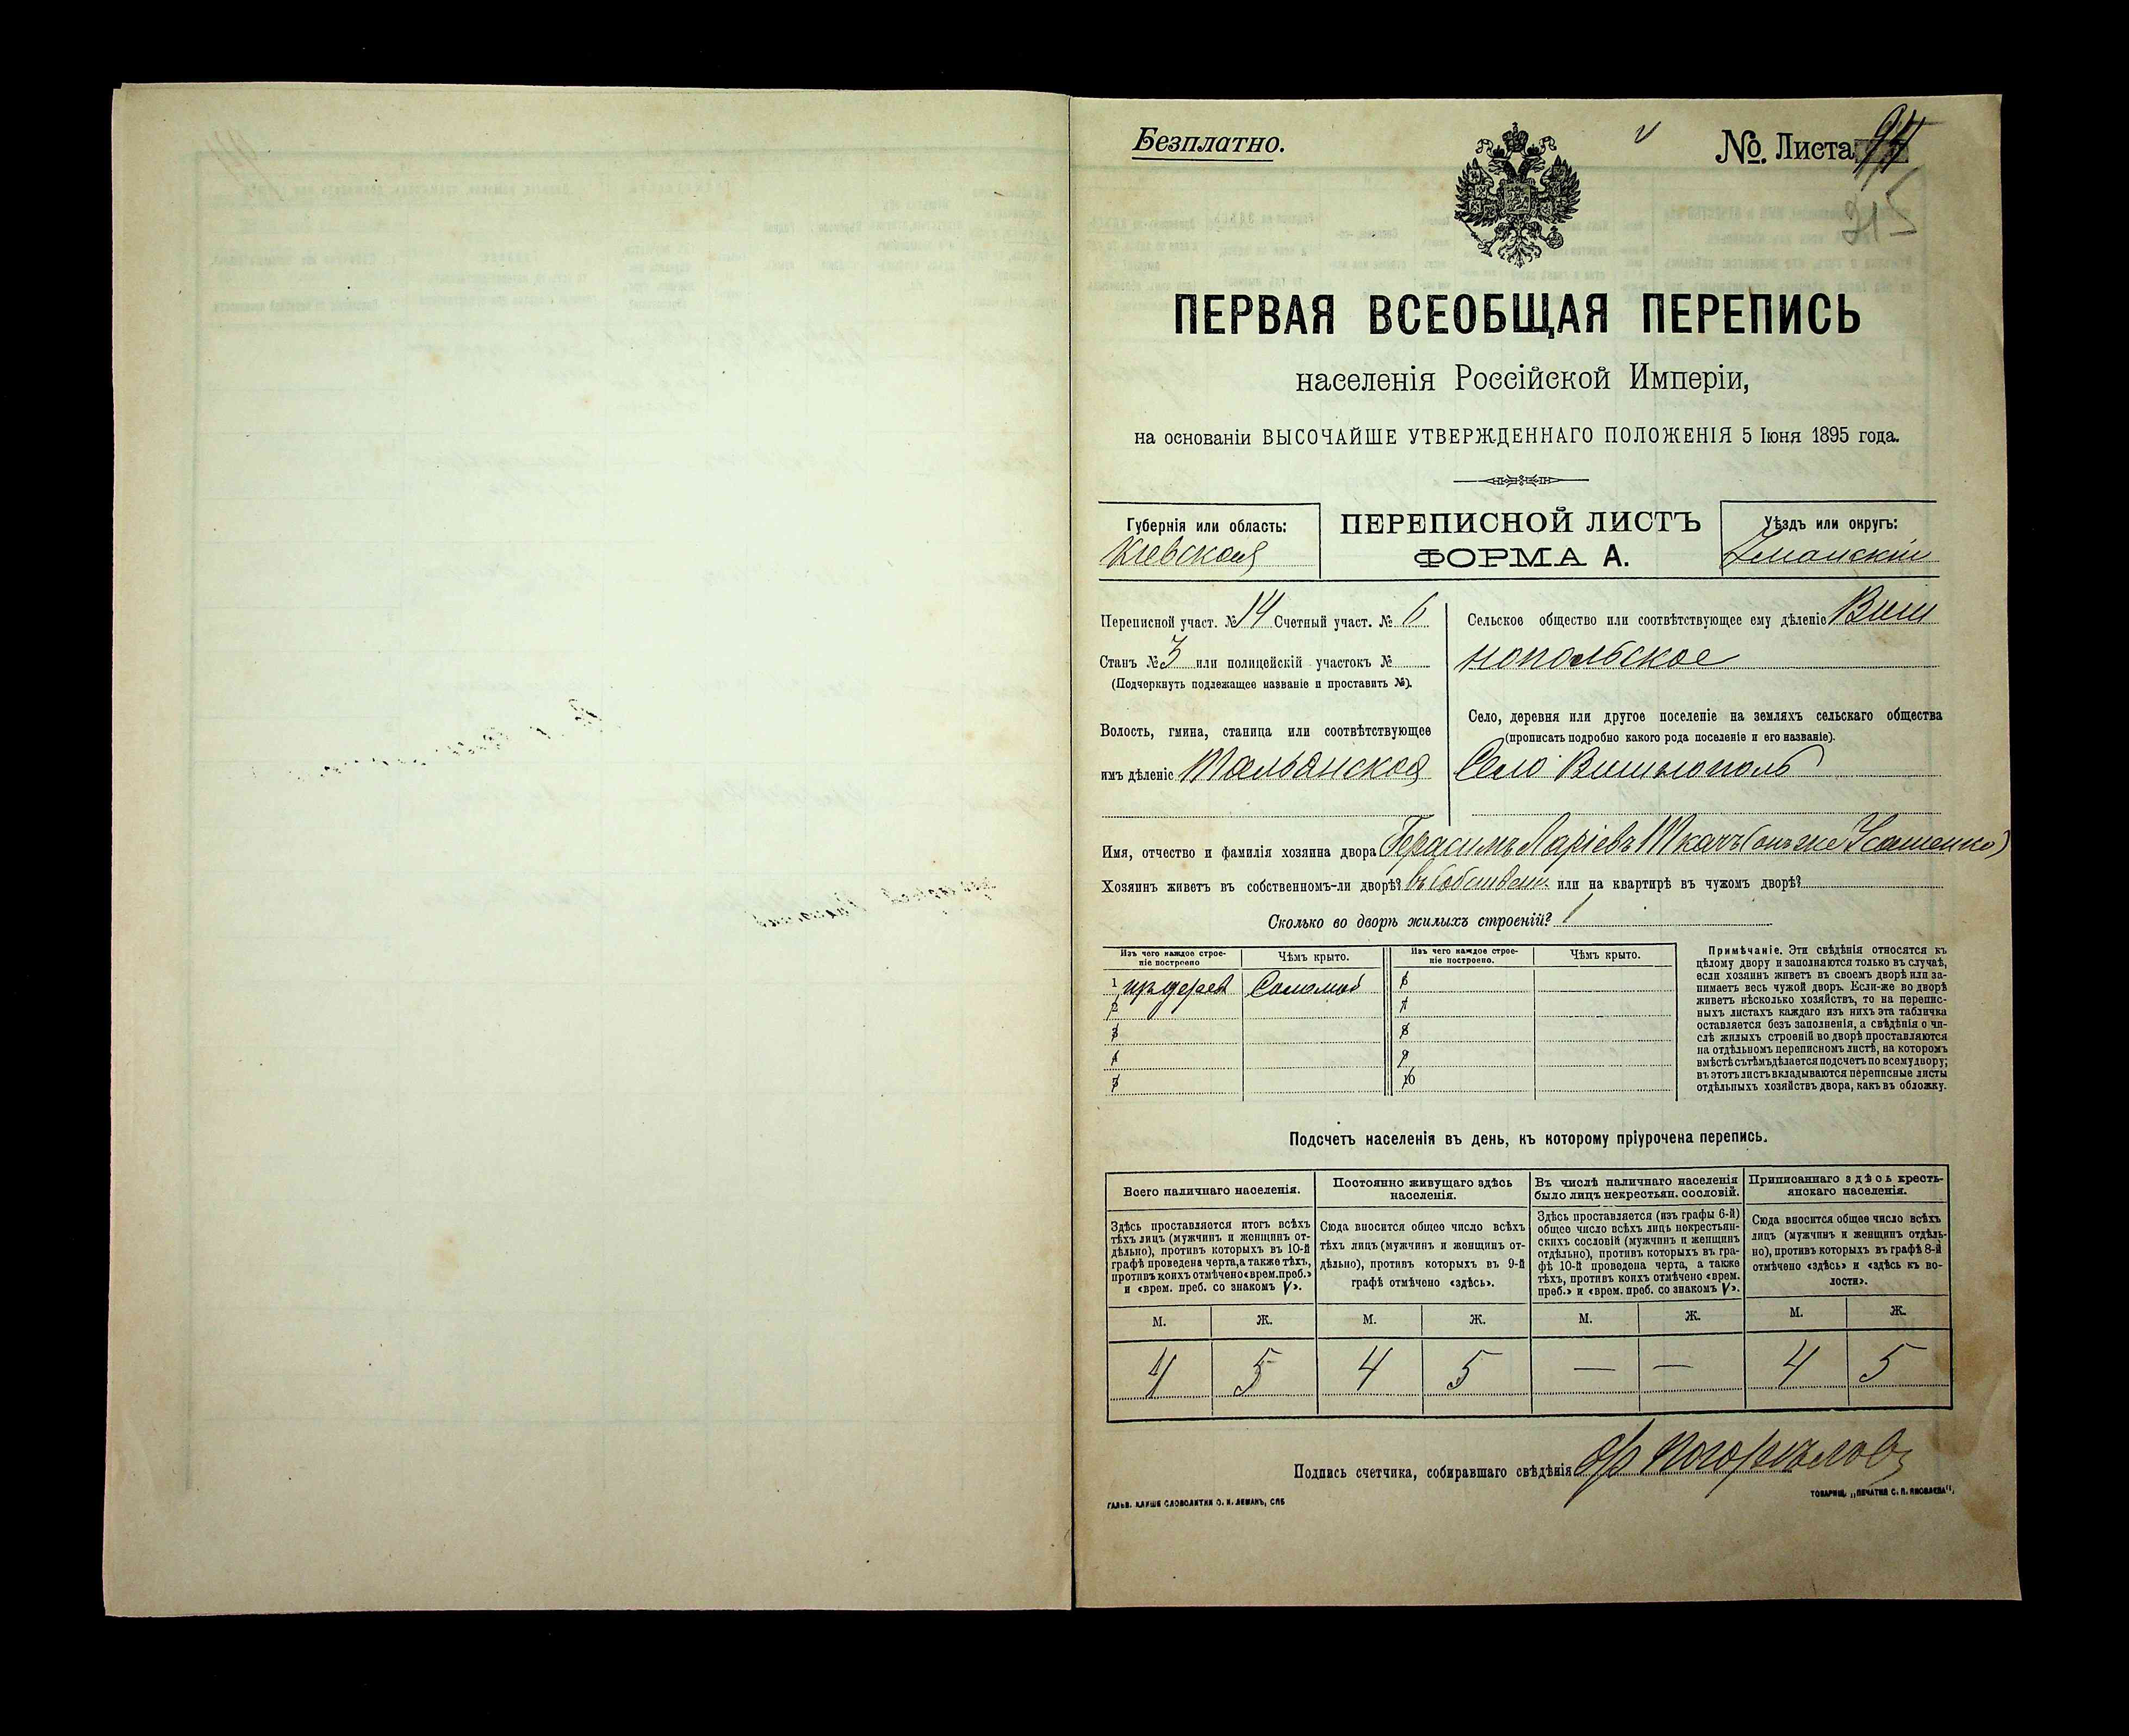 Безплатно.
№. Листа 94
215
ПЕРВАЯ ВСЕОБЩАЯ ПЕРЕПИСЬ
населенія Россійской Имперіи,
на основаніи ВЫСОЧАЙШЕ УТВЕРЖДЕННАГО ПОЛОЖЕНІЯ 5 Іюня 1895 года.
Губернія или область:
Кіевская
ПЕРЕПИСНОЙ ЛИСТЪ
ФОРМА А.
Уѣздъ или округъ:
Уманскій
Переписной участ. № 14 Счетный участ. № 6
Станъ № 3 или полицейскій участокъ №
(Подчеркнуть подлежащее названіе и проставить №).
Волость, гмина, станица или соотвѣтствующее
имъ дѣленіе Тальянская
Сельское общество или соотвѣтствующее ему дѣленіе Виш
нопольское
Село, деревня или другое поселеніе на земляхъ сельскаго общества
(прописать подробно какого рода поселеніе и его названіе).
Село Вишнополь
Имя, отчество и фамилія хозяина двора Герасимъ Ларіевъ Ткачъ (онъ же Усатенко)
Хозяинъ живетъ въ собственномъ-ли дворѣ? въ собствен. или на квартирѣ въ чужомъ дворѣ?
Сколько во дворѣ жилыхъ строеній? 1
Изъ чего каждое строе-
ніе построено
Чѣмъ крыто.
Изъ чего каждое строе-
ніе построено.
Чѣмъ крыто.
1 изъ дерева Соломой
2
3
4
5
6
7
8
9
10
Примѣчаніе. Эти свѣдѣнія относятся къ
цѣлому двору и заполняются только въ случаѣ,
если хозяинъ живетъ въ своемъ дворѣ или за-
нимаетъ весь чужой дворъ. Если-же во дворѣ
живетъ нѣсколько хозяйствъ, то на перепис-
ныхъ листахъ каждаго изъ нихъ эта табличка
оставляется безъ заполненія, а свѣдѣнія о чи-
слѣ жилыхъ строеній во дворѣ проставляются
на отдѣльномъ переписномъ листѣ, на которомъ
вмѣстѣ съ тѣмъ дѣлается подсчетъ по всему двору;
въ этотъ листъ вкладываются переписные листы
отдѣльныхъ хозяйствъ двора, какъ въ обложку.
Подсчетъ населенія въ день, къ которому пріурочена перепись.
Всего наличнаго населенія.
Постоянно живущаго здѣсь
населенія.
Въ числѣ наличнаго населенія
было лицъ некрестьян. сословій.
Приписаннаго здѣсь кресть-
янскаго населенія.
Здѣсь проставляется итогъ всѣхъ
тѣхъ лицъ (мужчинъ и женщинъ от-
дѣльно), противъ которыхъ въ 10-й
графѣ проведена черта, а также тѣхъ,
противъ коихъ отмѣчено «врем. преб.»
и «врем. преб. со знакомъ V».
Сюда вносится общее число всѣхъ
тѣхъ лицъ (мужчинъ и женщинъ от-
дѣльно), противъ которыхъ въ 9-й
графѣ отмѣчено «здѣсь».
Здѣсь проставляется (изъ графы 6-й)
общее число всѣхъ лицъ некрестьян-
скихъ сословій (мужчинъ и женщинъ
отдѣльно), противъ которыхъ въ гра-
фѣ 10-й проведена черта, а также
тѣхъ, противъ коихъ отмѣчено «врем.
преб.» и «врем. преб. со знакомъ V».
Сюда вносится общее число всѣхъ
лицъ (мужчинъ и женщинъ отдѣль-
но), противъ которыхъ въ графѣ 8-й
отмѣчено «здѣсь» и «здѣсь къ во-
лости».
М. Ж. М. Ж. М. Ж. М. Ж.
4 5 4 5 — — 4 5
Подпись счетчика, собиравшаго свѣдѣнія Погорѣловъ
ГАЛЬВ. КЛИШЕ СЛОВОЛИТНИ О. И. ЛЕМАНЪ, СПБ
ТОВАРИЩ. „ПЕЧАТНЯ С. П. ЯКОВЛЕВА".